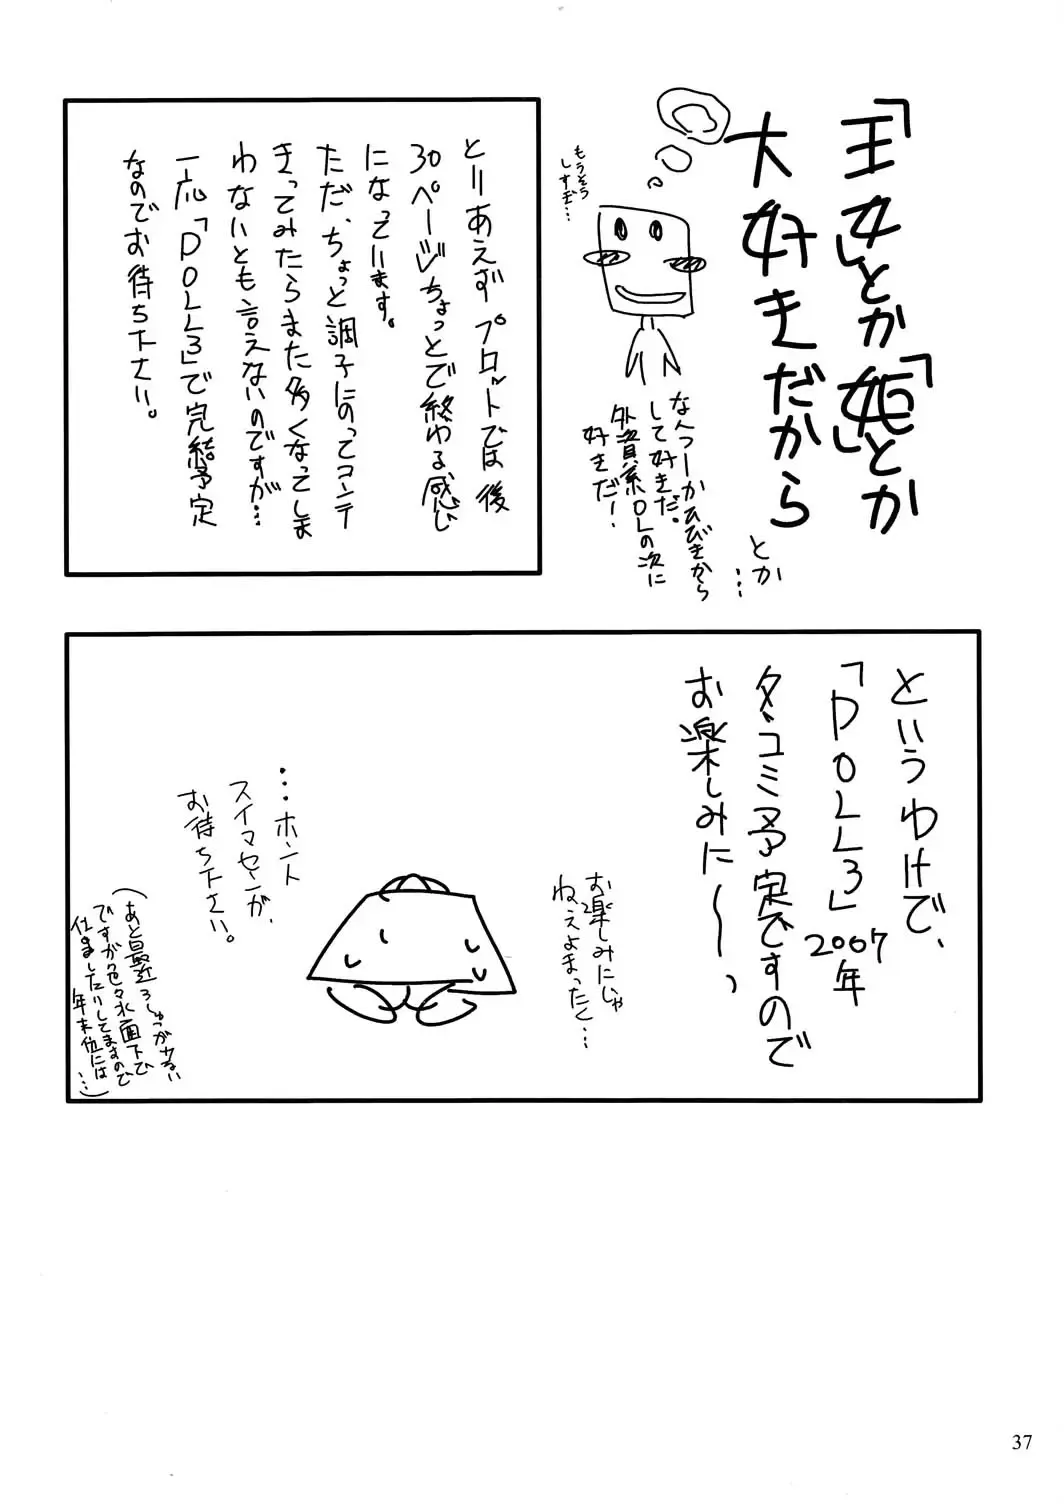 「王女」とか「姫」とか
大好きだから
とか…
もうそう
しすぎ…
なんつーかひびきから
して好きだ。
外資系OLの次に
好きだー!
とりあえずプロットでは後
30ページちょっとで終わる感じ
になっています。
ただ、ちょっと調子にのってコンテ
きってみたらまた多くなってしま
わないとも言えないのですが…
一応「DOLL3」で完結予定
なのでお待ち下さい。
というわけで、
「DOLL3」2007年
冬コミ予定ですので
お楽しみに〜〜っ
お楽しみにじゃ
ねえよまったく…
…ホント
スイマセンが、
お待ち下さい。
(あと最近ろしゅつが少ない
ですが色々水面下で
仕事したりしてますので
年末位には…)
37